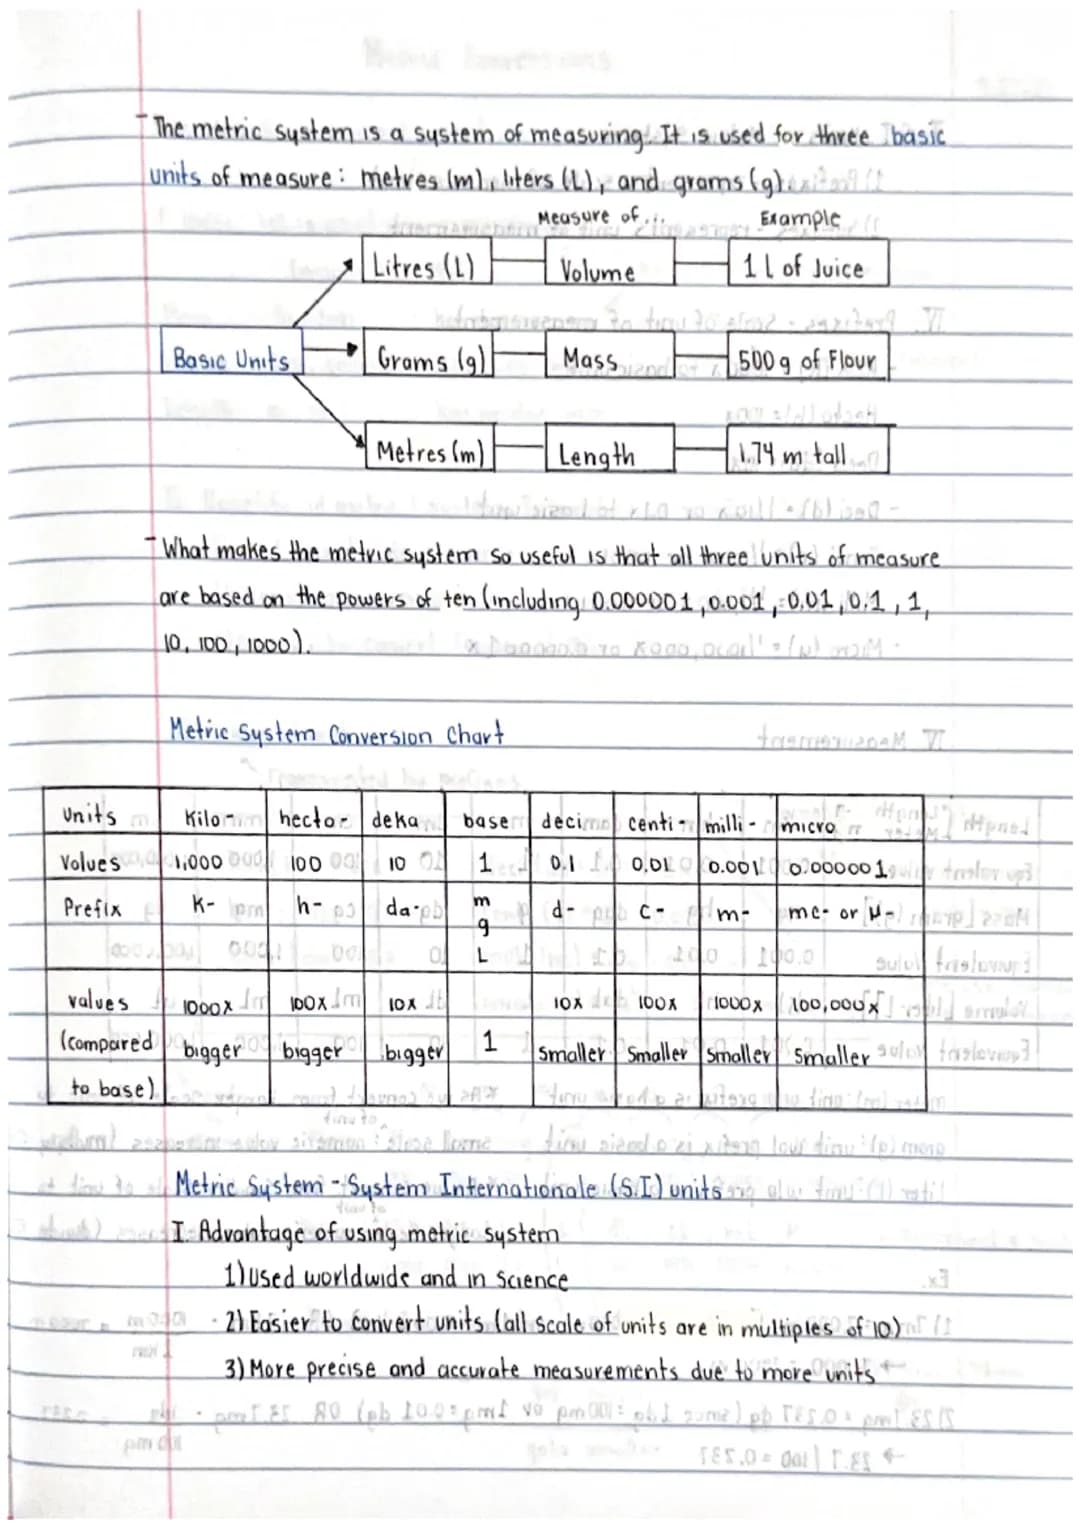 - The metric system is a system of measuring. It is used for three basic
units of measure: metres (m), liters (L), and grams (g).
Measure of... Example
Litres (L) Volume 1 L of Juice
Basic Units Grams (g) Mass 500 g of Flour
Metres (m) Length 1.74 m tall
- What makes the metric system so useful is that all three units of measure
are based on the powers of ten (including 0.000001, 0.001, 0.01, 0.1, 1,
10, 100, 1000).
Metric System Conversion Chart
units Kilo- hecto- deka base deci centi- milli- micro
Values 1,000 100 10 1 0.1 0.01 0.001 0.000001
Prefix K- h- da- m d- c- m- mc- or μ-
g
L
values 1000x 100x 10x 10x 100x 1000x 100,000x
(compared bigger bigger bigger 1 smaller smaller smaller smaller
to base)
Metric System - System Internationale (S.I) units
I. Advantage of using metric system
1) Used worldwide and in science
2) Easier to convert units (all scale of units are in multiples of 10)
3) More precise and accurate measurements due to more units